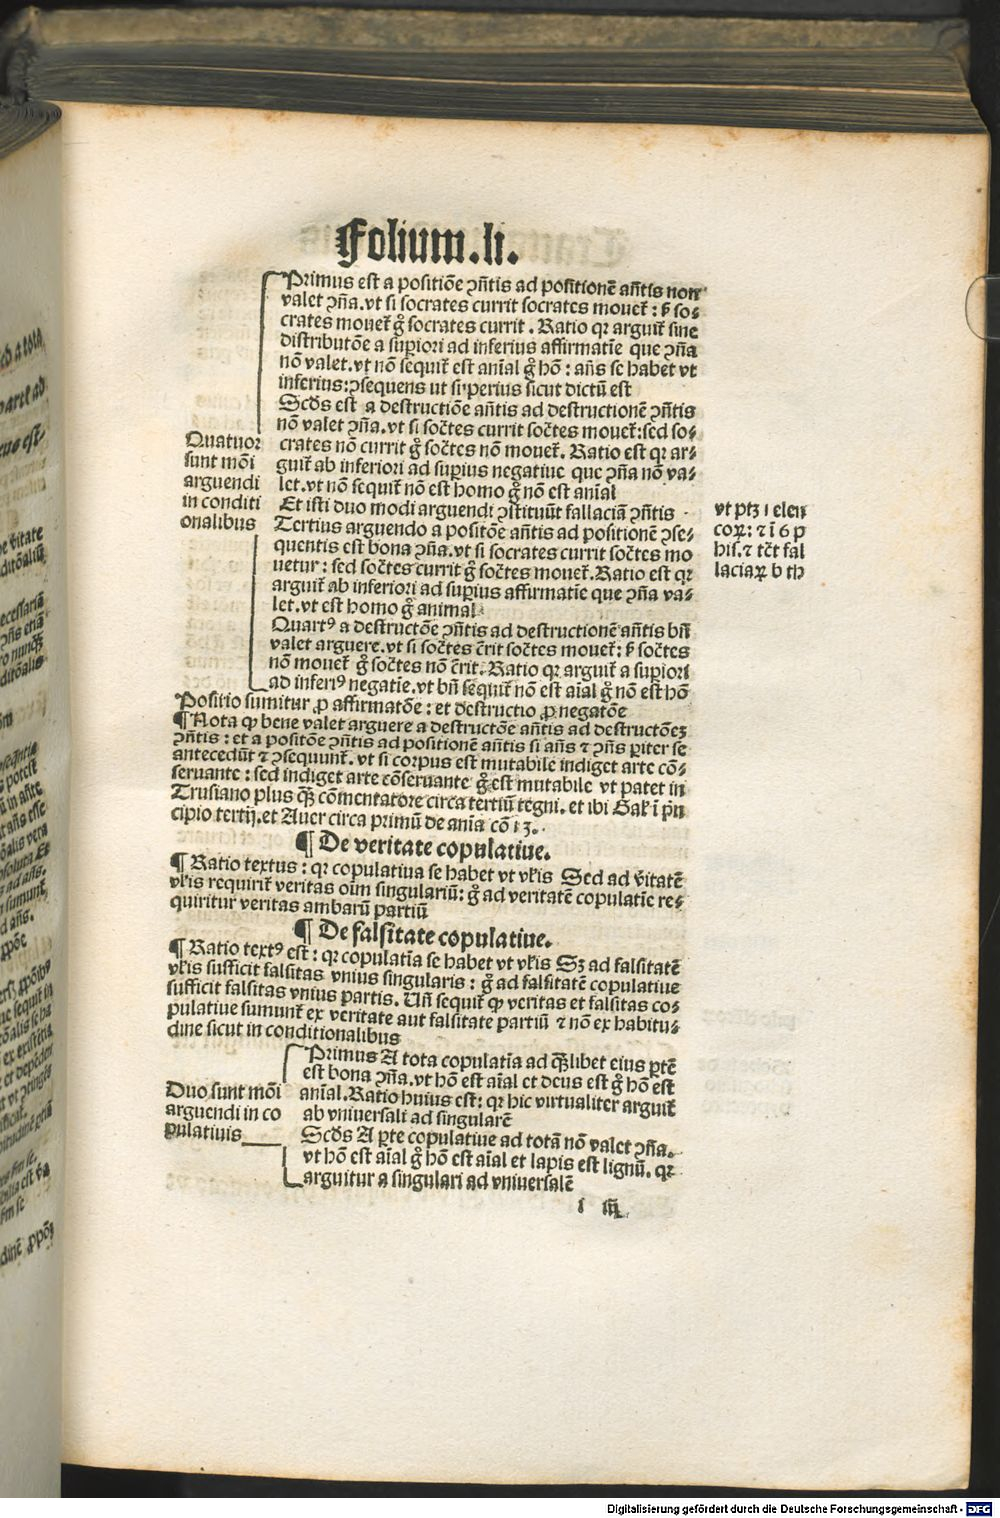 Folium.li.
Primus est a positiõe ꝯñtis ad positionẽ añtis non
valet ꝯña.vt si socrates currit socrates mouet᷑: s̃ so⸗
crates mouet᷑ g̊ socrates currit. Ratio qr arguit᷑ sine
distributõe a sup̲iori ad inferius affirmatĩe que ꝯña
nõ valet.vt nõ sequit᷑ est anĩal g̊ hõ: añs se habet vt
inferius:ꝯsequens ut superius sicut dictũ est
Scd̃s est a destructiõe añtis ad destructionẽ ꝯñtis
nõ valet ꝯña.vt si socrates currit soc̃tes mouet᷑:sed so⸗
crates nõ currit g̊ soc̃tes nõ mouet᷑. Ratio est qr ar⸗
guit᷑ ab inferiori ad sup̲ius negatiue que ꝯña nõ va⸗
let.vt nõ sequit᷑ nõ est homo g̊ nõ est anĩal
Et isti duo modi arguendi ꝯstituũt fallaciã ꝯñtis
Tertius arguendo a positõe añtis ad positionẽ ꝯse⸗
quentis est bona ꝯña.vt si socrates currit soc̃tes mo
uetur: sed soc̃tes currit g̊ soc̃tes mouet᷑.Ratio est qr
arguit᷑ ab inferiori ad sup̲ius affirmatĩe que ꝯña va⸗
let.vt est homo g̊ animal
Quartꝰ a destructõe ꝯñtis ad destructionẽ añtis bñ
valet arguere.vt si soc̃tes c̃rit soc̃tes mouet᷑: s̃ soc̃tes
nõ mouet᷑ g̊ soc̃tes nõ c̃rit. Ratio qr arguit᷑ a sup̲iori
ad inferiꝰ negatĩe.vt bñ sequit᷑ nõ est aĩal g̊ nõ est hõ
Quatuor
sunt mõi
arguendi
in conditi
onalibus
vt ptꝫ i elen
coꝝ: ⁊ ĩ 6 p
his.⁊ tc̃t fal
laciaꝝ b th
Positio sumitur ꝓ affirmatõe: et destructio ꝓ negatõe
¶ Nota ꝙ bene valet arguere a destructõe añtis ad destructõeꝫ
ꝯñtis: et a positõe ꝯñtis ad positionẽ añtis si añs ⁊ ꝯñs p̲iter se
antecedũt ⁊ ꝯsequunt᷑. vt si corpus est mutabile indiget arte cõ⸗
seruante: sed indiget arte cõseruante g̊ est mutabile vt patet in
Trusiano plus qʒ̃ cõmentatore circa tertiũ tegni. et ibi Gal᷑ ĩ p̃n
cipio tertij.et Auer circa primũ de anĩa cõ 13.
¶ De veritate copulatiue.
¶ Ratio textus: qr copulatiua se habet vt vl̃is Sed ad v̾itatẽ
vl̃is requirit᷑ veritas oĩm singulariũ: g̊ ad veritatẽ copulatĩe re⸗
quiritur veritas ambarũ partiũ
¶ De falsitate copulatiue.
¶ Ratio textꝰ est: qr copulatĩa se habet vt vl̃is Sꝫ ad falsitatẽ
vl̃is sufficit falsitas vnius singularis: g̊ ad falsitatẽ copulatiue
sufficit falsitas vnius partis. Uñ sequit᷑ ꝙ veritas et falsitas co⸗
pulatiue sumunt᷑ ex veritate aut falsitate partiũ ⁊ nõ ex habitu⸗
dine sicut in conditionalibus
Primus A tota copulatĩa ad qʒ̃libet eius p̲tẽ
est bona ꝯña.vt hõ est aĩal et deus est g̊ hõ est
anĩal.Ratio huius est: qr hic virtualiter arguit᷑
ab vniuersali ad singularẽ
Scd̃s A p̲te copulatiue ad totã nõ valet ꝯña.
vt hõ est aĩal g̊ hõ est aĩal et lapis est lignũ. qr
arguitur a singulari ad vniuersalẽ
Duo sunt mõi
arguendi in co
pulatiuis
i iij
Digitalisierung gefördert durch die Deutsche Forschungsgemeinschaft - DFG